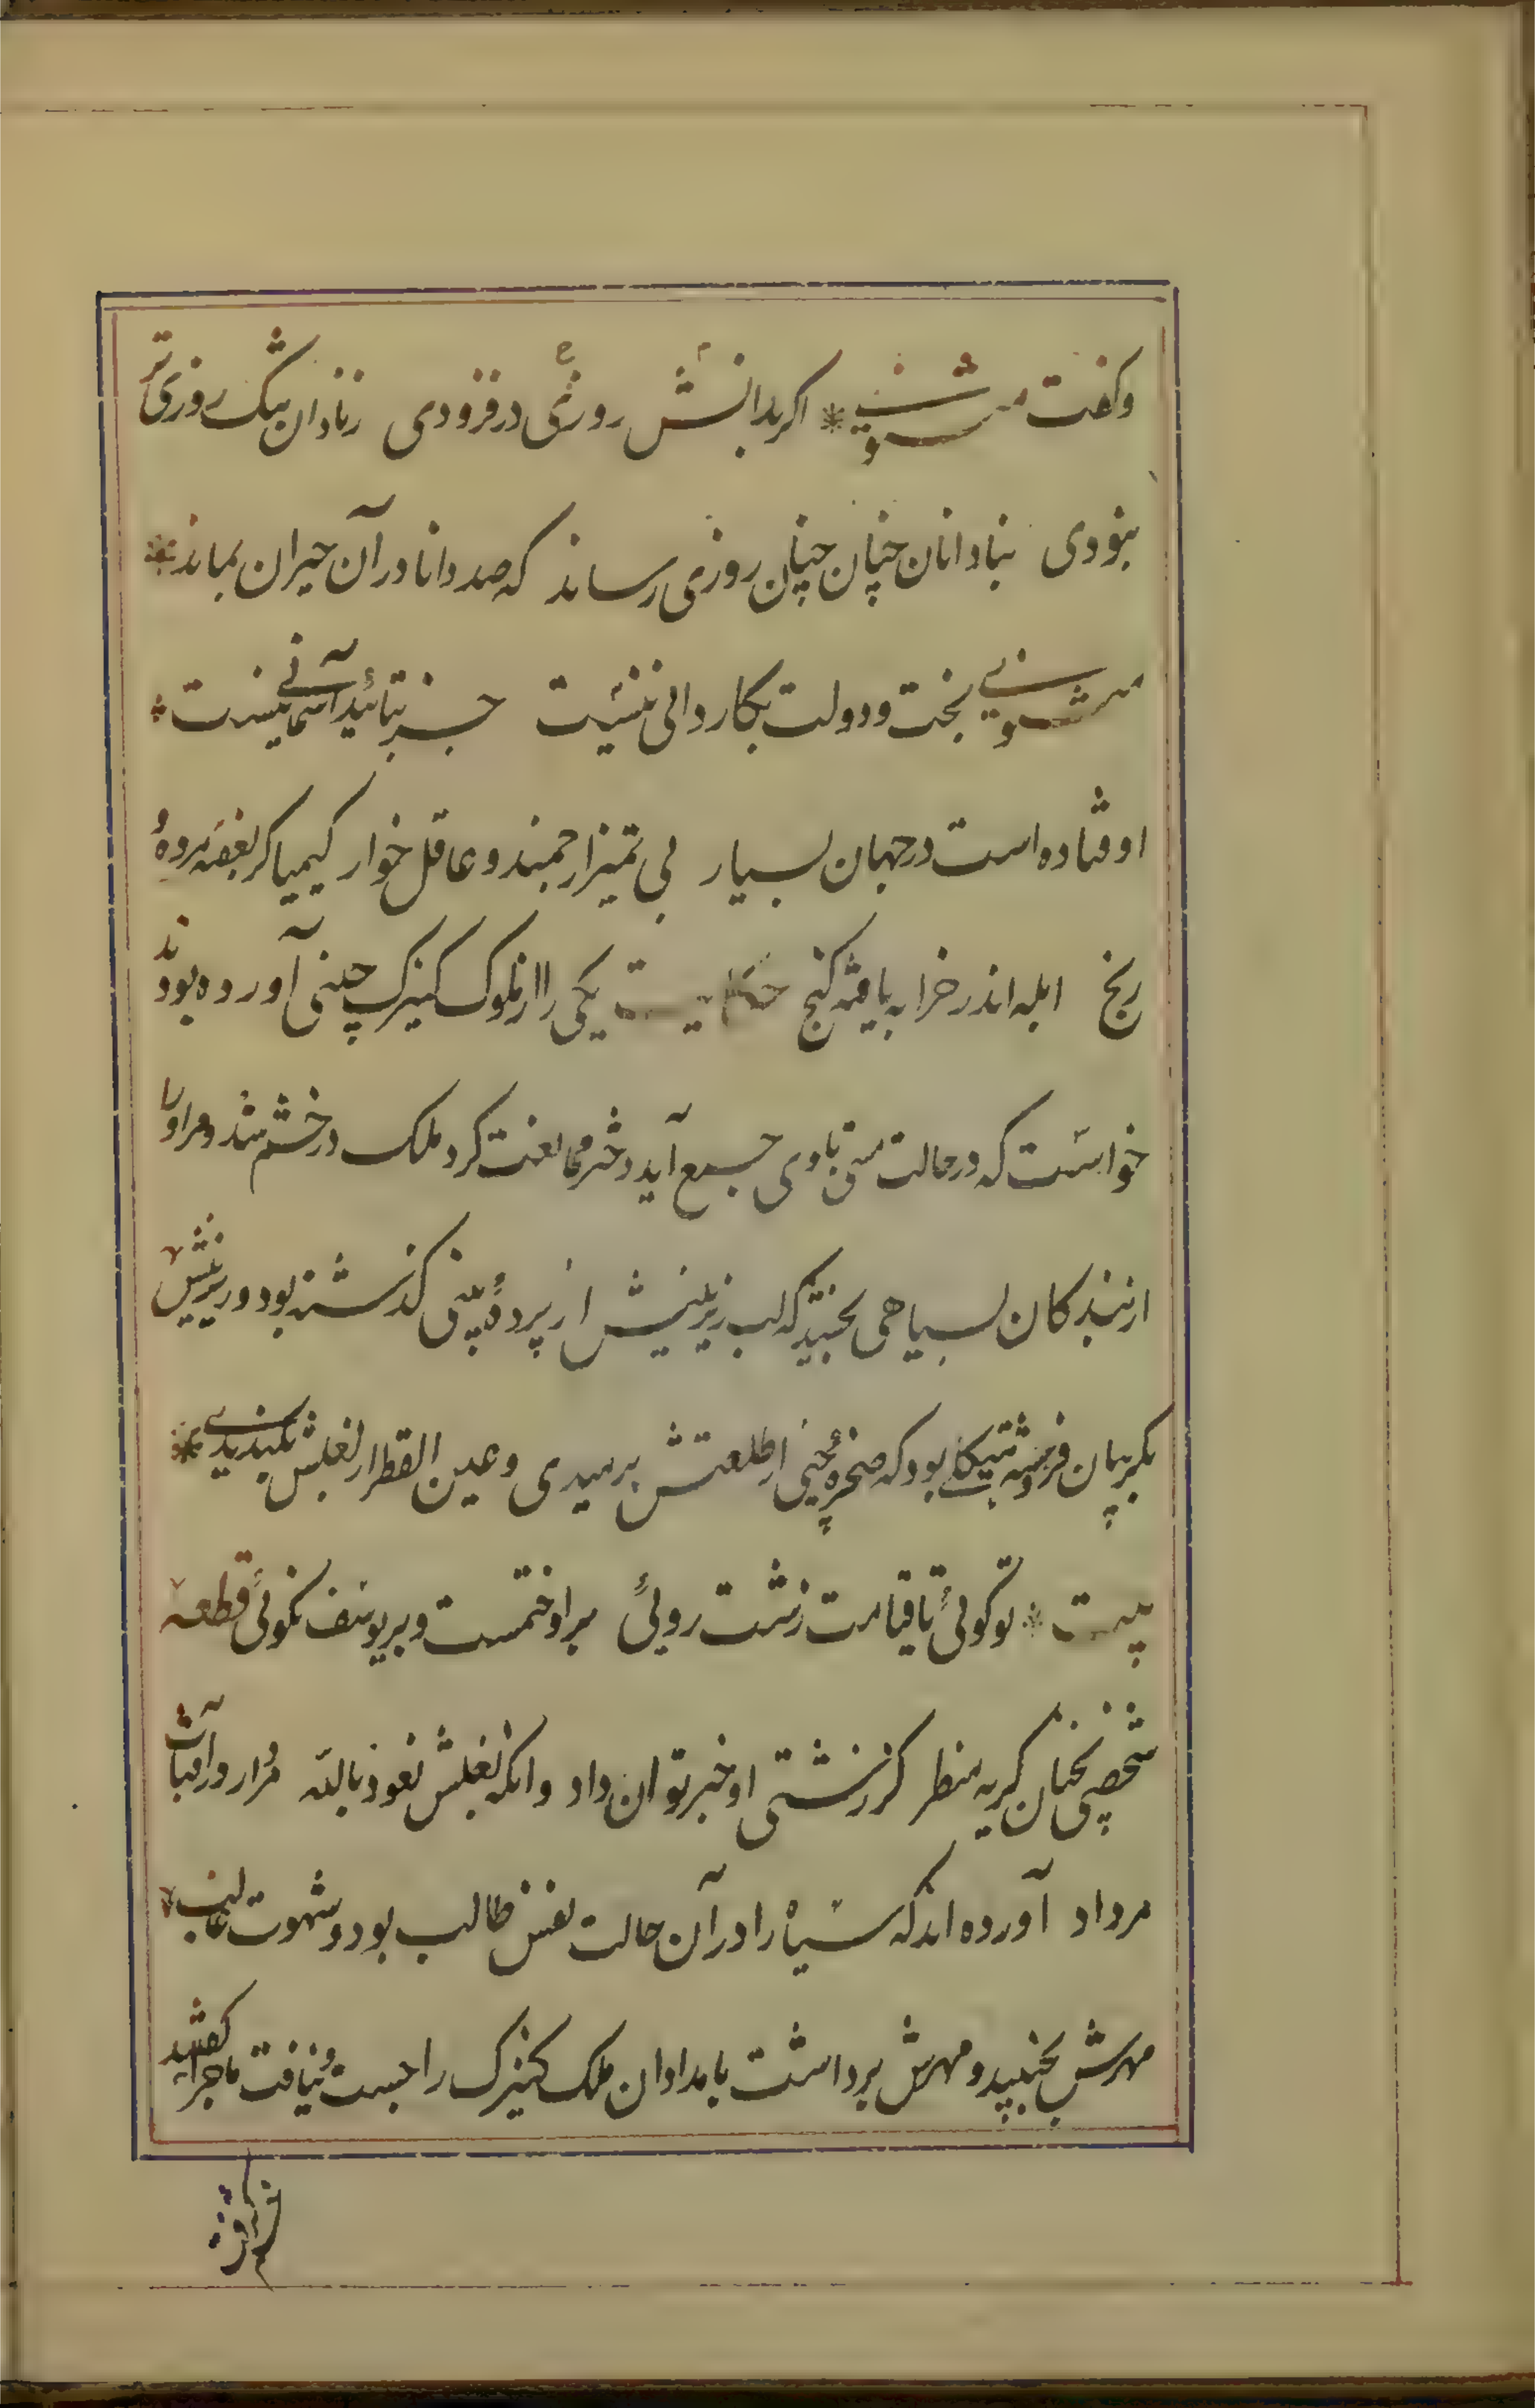 وکفت مثنوی * اکر بدانش روزی درفزودی زنادان تنک روزی تر
نبودی بنادانان چنان روزی رساند که صد دانا در آن حیران بماند *
مثنوی بخت و دولت بکاردانی نیست جز بتائید آسمانی نیست *
اوفتاده است در جهان بسیار بی تمیز ارجمند و عاقل خوار کیمیاکر بغصه مرده
رنج ابله اندر خرابه یافته کنج حکایت یکی را از ملوک کنیزک چینی آورده بودند
خواست که در حالت مستی باوی جمع آید دختر ممانعت کرد ملک در خشم شد و مر اورا
از بندکان بسیاهی بخشید که لب زبرینش از پرده بینی کذشته بود و زیرینش
بکریبان فروهشته هیکلی بود که صخره جنی از طلعتش برمیدی و عین القطر از بغلش بکندیدی *
بیت * توکوئی تا قیامت زشت روئی بر او ختمست و بر یوسف نکوئی قطعه
شخصی نچنان کریه منظر کز زشتی او خبر توان داد وانکه بغلش نعوذ بالله مردار در آفتاب
مرداد آورده اند که سیاه را در آن حالت نفس طالب بود و شهوت غالب
مهرش بجنبید و مهرش برداشت بامدادان ملک کنیزک را جست و نیافت ماجرا بکفتند